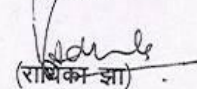 (राधिका झा)